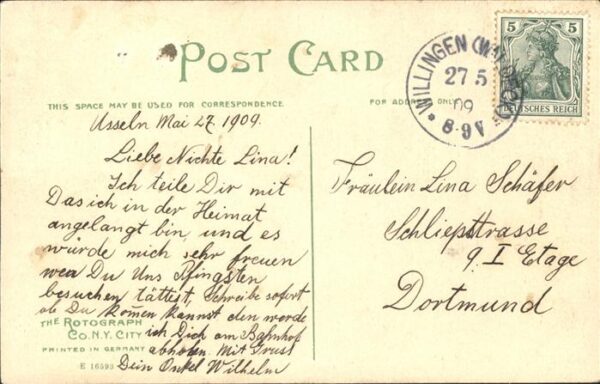 POST CARD
THIS SPACE MAY BE USED FOR CORRESPONDENCE.
FOR ADDRESS ONLY
WILLINGEN (WALDECK)
27 5
09
8-9V
5 5
DEUTSCHES REICH
Usseln Mai 27. 1909.
Liebe Nichte Lina!
Ich teile Dir mit
Das ich in der Heimat
angelangt bin und es
würde mich sehr freuen
wen Du Uns Pfingsten
besuchen tättest, Schreibe sofort
ob Du komen kannst den werde
ich Dich am Bahnhof
abholen. Mit Gruss
Dein Onkel Wilhelm
THE ROTOGRAPH
CO. N.Y. CITY
PRINTED IN GERMANY
E 16593
Fräulein Lina Schäfer
Schliepstrasse
9. I Etage
Dortmund